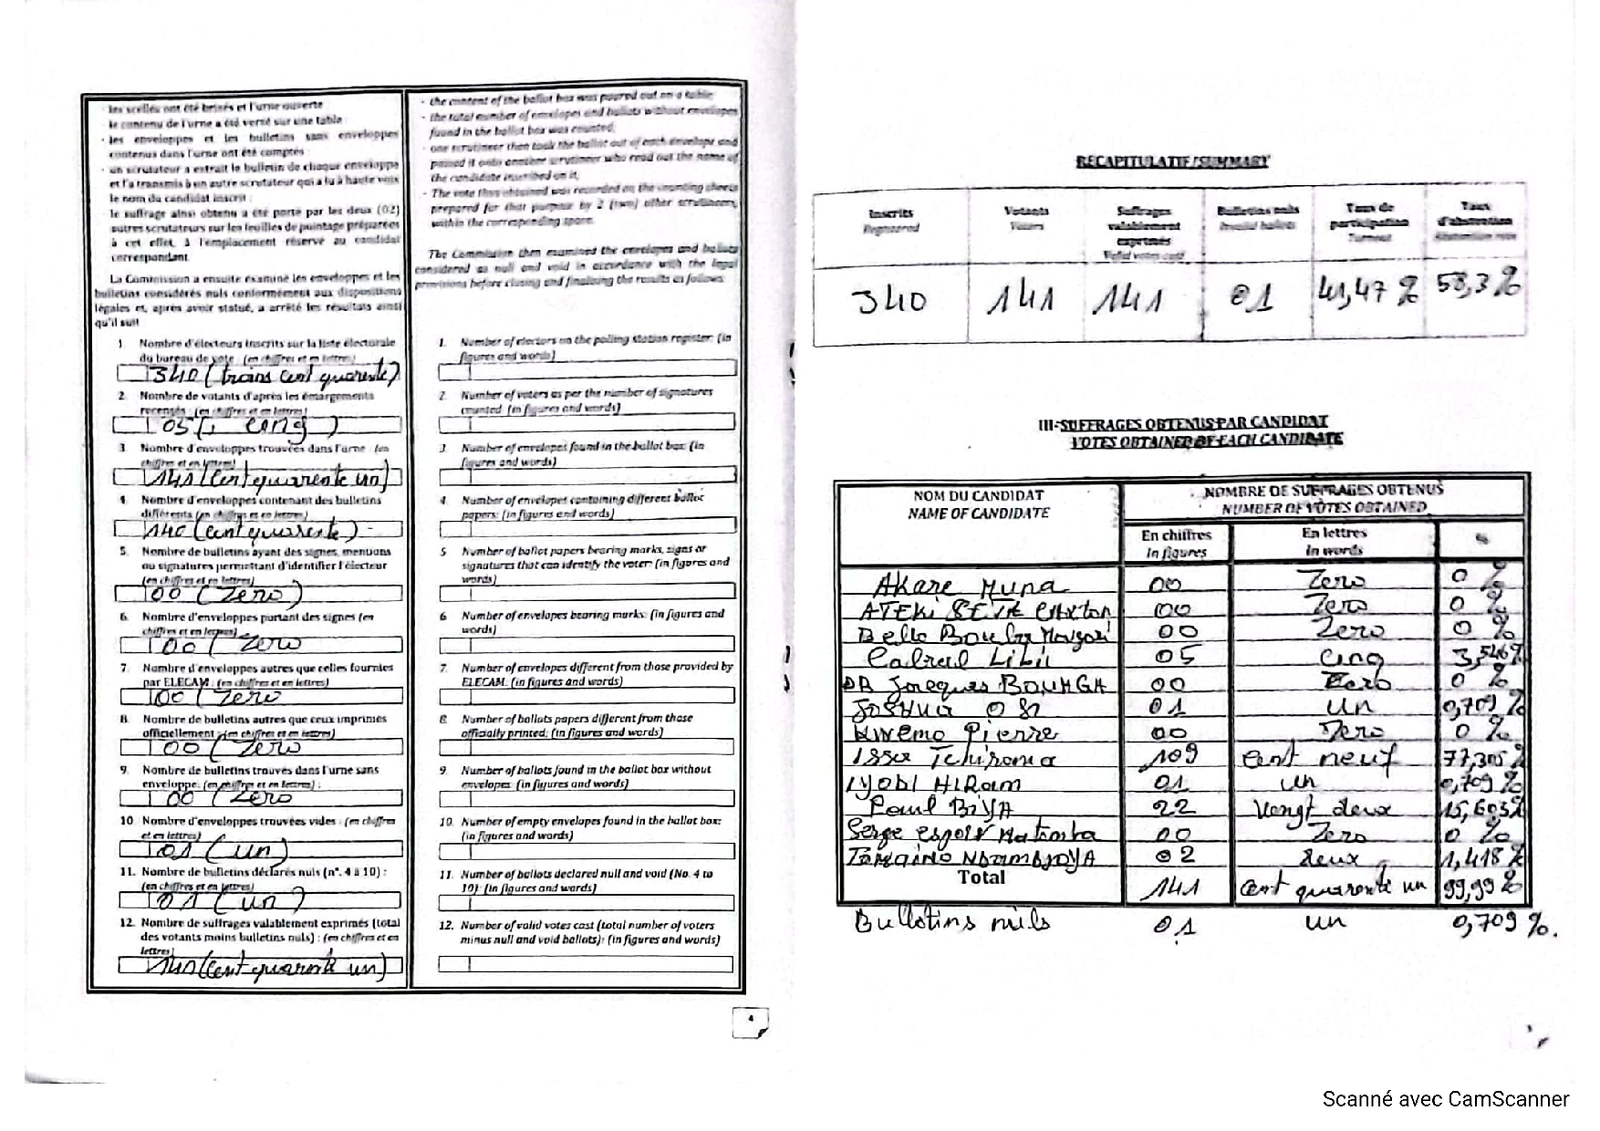 les scellés ont été brisés et l'urne ouverte
le contenu de l'urne a été versé sur une table :
- les enveloppes et les bulletins sans enveloppes
contenus dans l'urne ont été comptés :
- un scrutateur a extrait le bulletin de chaque enveloppe
et l'a transmis à un autre scrutateur qui a lu à haute voix
le nom du candidat inscrit :
le suffrage ainsi obtenu a été porté par les deux (02)
autres scrutateurs sur les feuilles de pointage préparées
à cet effet, à l'emplacement réservé au candidat
correspondant.
La Commission a ensuite examiné les enveloppes et les
bulletins considérés nuls conformément aux dispositions
légales et, après avoir statué, a arrêté les résultats ainsi
qu'il suit
1. Nombre d'électeurs inscrits sur la liste électorale
du bureau de vote : (en chiffres et en lettres)
340 (trois cent quarente)
2. Nombre de votants d'après les émargements
recensés : (en chiffres et en lettres)
05 (, cinq )
3. Nombre d'enveloppes trouvées dans l'urne (en
chiffres et en lettres)
141 (cent quarente un)
4. Nombre d'enveloppes contenant des bulletins
différents (en chiffres et en lettres)
140 (cent quarente)
5. Nombre de bulletins ayant des signes, mentions
ou signatures permettant d'identifier l'électeur
(en chiffres et en lettres)
00 (Zero)
6. Nombre d'enveloppes portant des signes (en
chiffres et en lettres)
00 (Zero
7. Nombre d'enveloppes autres que celles fournies
par ELECAM : (en chiffres et en lettres)
00 (Zero
8. Nombre de bulletins autres que ceux imprimés
officiellement : (en chiffres et en lettres)
00 (Zero
9. Nombre de bulletins trouvés dans l'urne sans
enveloppe: (en chiffres et en lettres) :
00 (Zero
10. Nombre d'enveloppes trouvées vides : (en chiffres
et en lettres)
01 (un)
11. Nombre de bulletins déclarés nuls (n°. 4 à 10) :
(en chiffres et en lettres)
01 (un)
12. Nombre de suffrages valablement exprimés (total
des votants moins bulletins nuls) : (en chiffres et en
lettres)
(cent quarente un)
- the content of the ballot box was poured out on a table;
- the total number of envelopes and ballots without envelopes
found in the ballot box was counted;
- one scrutineer then took the ballot out of each envelope and
passed it onto another scrutineer who read out the name of
the candidate inscribed on it;
- The vote thus obtained was recorded on the counting sheets
prepared for that purpose by 2 (two) other scrutineers,
within the corresponding space.
The Commission then examined the envelopes and ballots
considered as null and void in accordance with the legal
provisions before closing and finalising the results as follows:
1. Number of electors on the polling station register: (in
figures and words)
2. Number of voters as per the number of signatures
counted: (in figures and words)
3. Number of envelopes found in the ballot box: (in
figures and words)
4. Number of envelopes containing different ballot
papers: (in figures and words)
5 Number of ballot papers bearing marks, signs or
signatures that can identify the voter: (in figures and
words)
6 Number of envelopes bearing marks: (in figures and
words)
7. Number of envelopes different from those provided by
ELECAM: (in figures and words)
8. Number of ballots papers different from those
officially printed: (in figures and words)
9. Number of ballots found in the ballot box without
envelopes: (in figures and words)
10. Number of empty envelopes found in the ballot box:
(in figures and words)
11. Number of ballots declared null and void (No. 4 to
10): (in figures and words)
12. Number of valid votes cast (total number of voters
minus null and void ballots): (in figures and words)
4
RECAPITULATIF/SUMMARY
Inscrits Registered
Votants Voters
Suffrages valablement exprimés Valid votes cast
Bulletins nuls Invalid ballots
Taux de participation Turnout
Taux d'abstention Abstention rate
340 141 141 01 41,47 % 58,3 %
III-SUFFRAGES OBTENUS PAR CANDIDAT
VOTES OBTAINED BY EACH CANDIDATE
NOM DU CANDIDAT NOMBRE DE SUFFRAGES OBTENUS
NAME OF CANDIDATE NUMBER OF VOTES OBTAINED
En chiffres En lettres %
In figures In words
Akare Muna 00 Zero 0 %
ATEKI SETA Caxton 00 Zero 0 %
Bello Bouba Maigari 00 Zero 0 %
Cabral Libii 05 cinq 3,546%
DR Jacques BOUHGA 00 Zero 0 %
Joshua OSI 01 un 0,709 %
Kwemo Pierre 00 Zero 0 %
Issa Tchiroma 109 cent neuf 77,305 %
IYODI HIRAM 01 un 0,709 %
Paul BIYA 22 Vengt deux 15,603%
Serge espoir Matomba 00 Zero 0 %
Tomaino NDAMNJOYA 02 deux 1,418 %
Total 141 cent quarente un 99,99 %
Bulletins nuls 01 un 0,709 %.
Scanné avec CamScanner